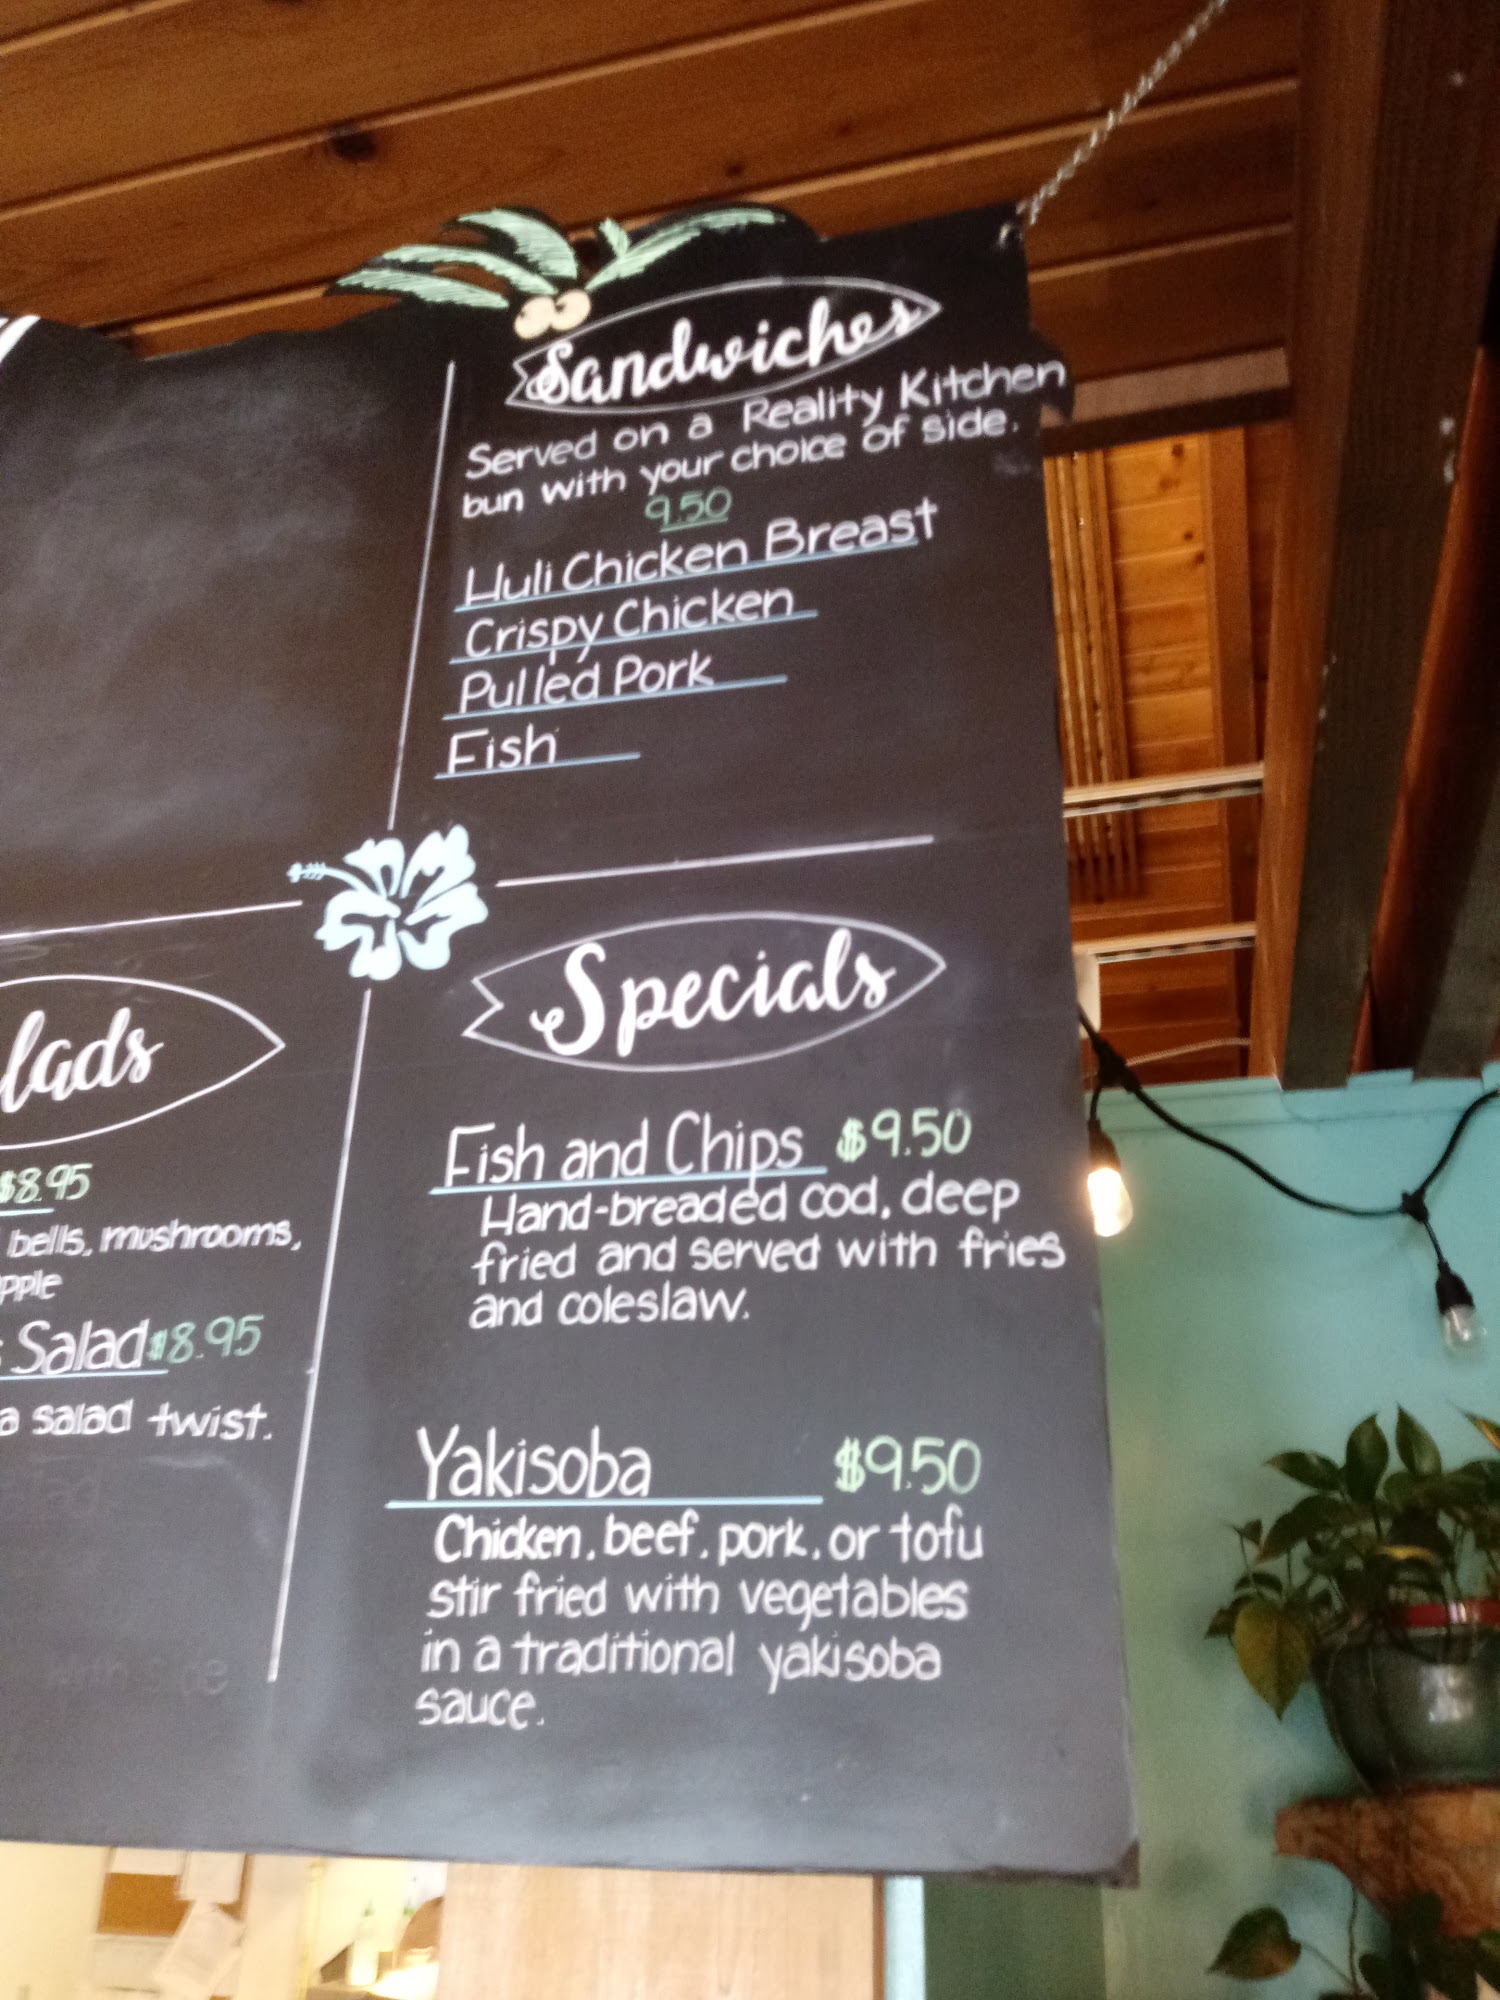 Sandwiches
Served on a Reality Kitchen
bun with your choice of side.
9.50
Huli Chicken Breast
Crispy Chicken
Pulled Pork
Fish
lads
$8.95
bells, mushrooms,
pple
Salad $8.95
a salad twist.
Specials
Fish and Chips $9.50
Hand-breaded cod, deep
fried and served with fries
and coleslaw.
Yakisoba $9.50
Chicken, beef, pork, or tofu
stir fried with vegetables
in a traditional yakisoba
sauce.